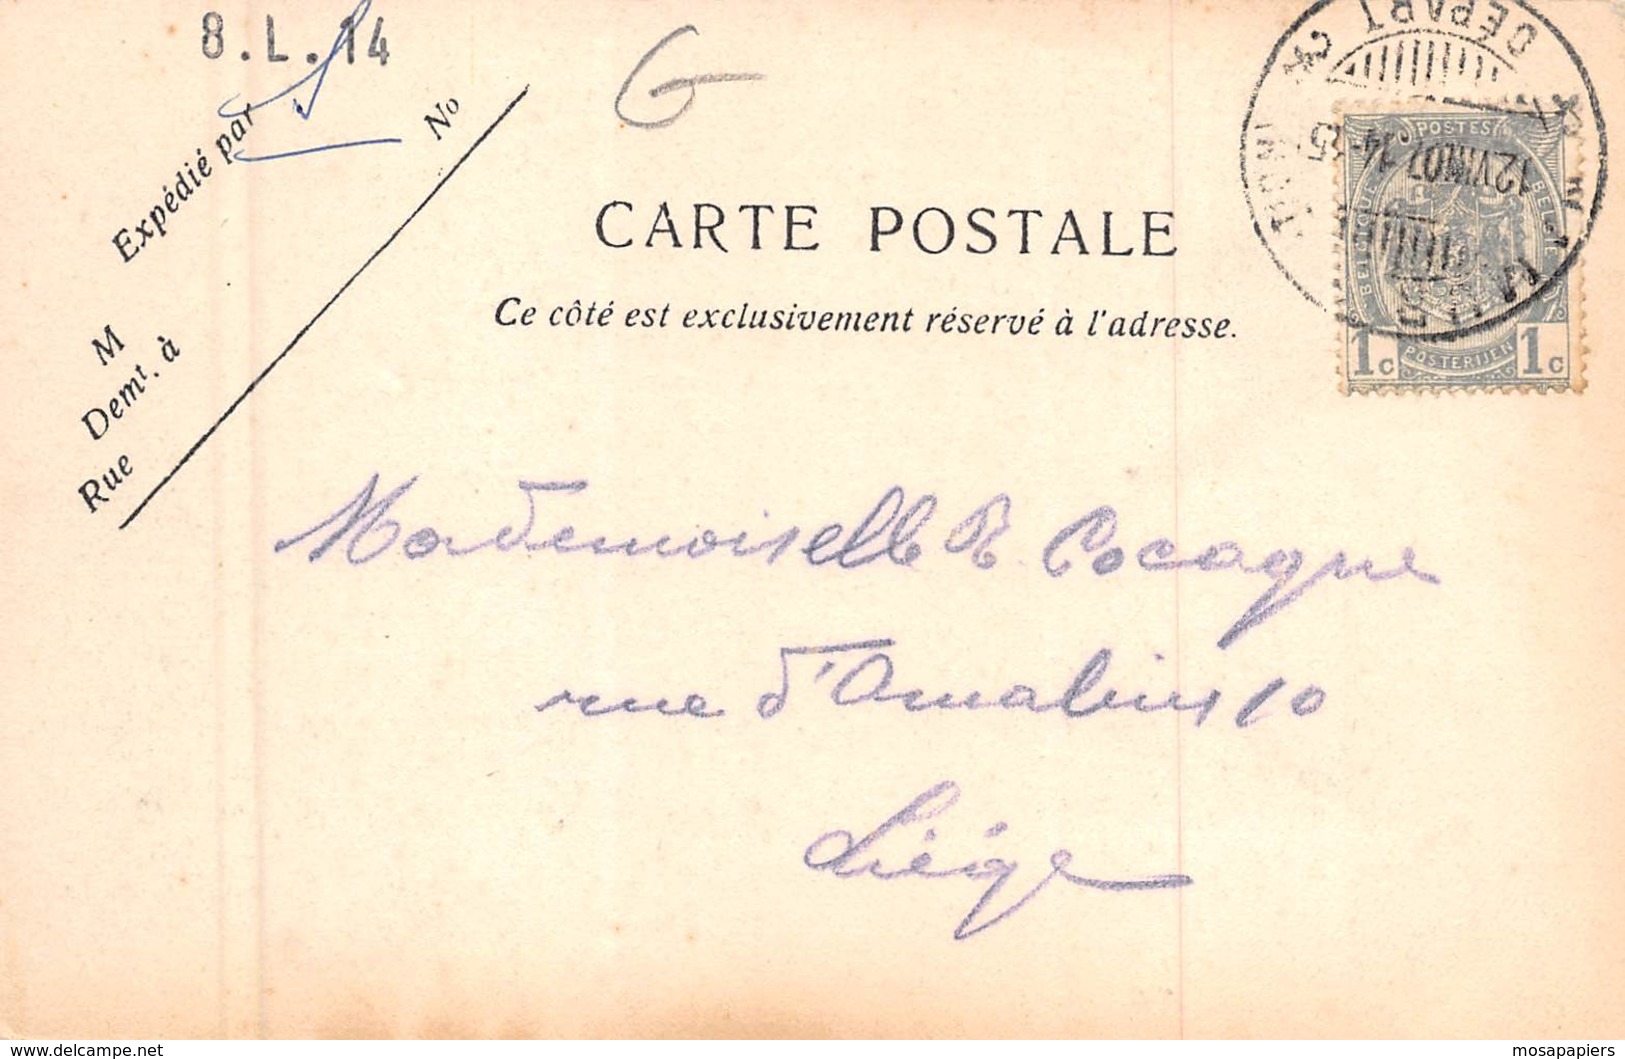 8.L.14
Expédié par
No
M
Demt. à
Rue
G
CARTE POSTALE
Ce côté est exclusivement réservé à l'adresse.
DEPART
12 VIII 07 14-15
POSTES
BELGIQUE
BELGIE
1c POSTERIJEN 1c
Mademoiselle R Cocagne
rue d'Amabius 10
Liège
www.delcampe.net
mosapapiers